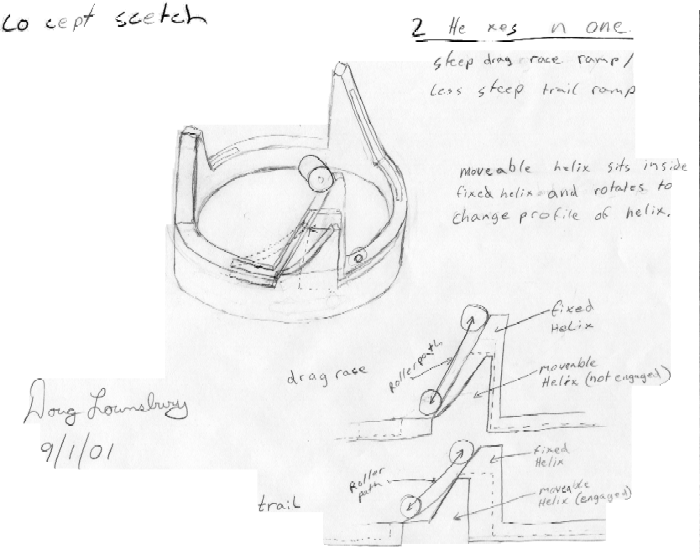 co cept scetch
2 He xes n one
steep drag race ramp/
less steep trail ramp
moveable helix sits inside
fixed helix and rotates to
change profile of helix.
fixed
Helix
Roller path
drag race
moveable
Helix (not engaged)
Doug Lounsbury
9/1/01
fixed
Helix
Roller
path
moveable
Helix (engaged)
trail